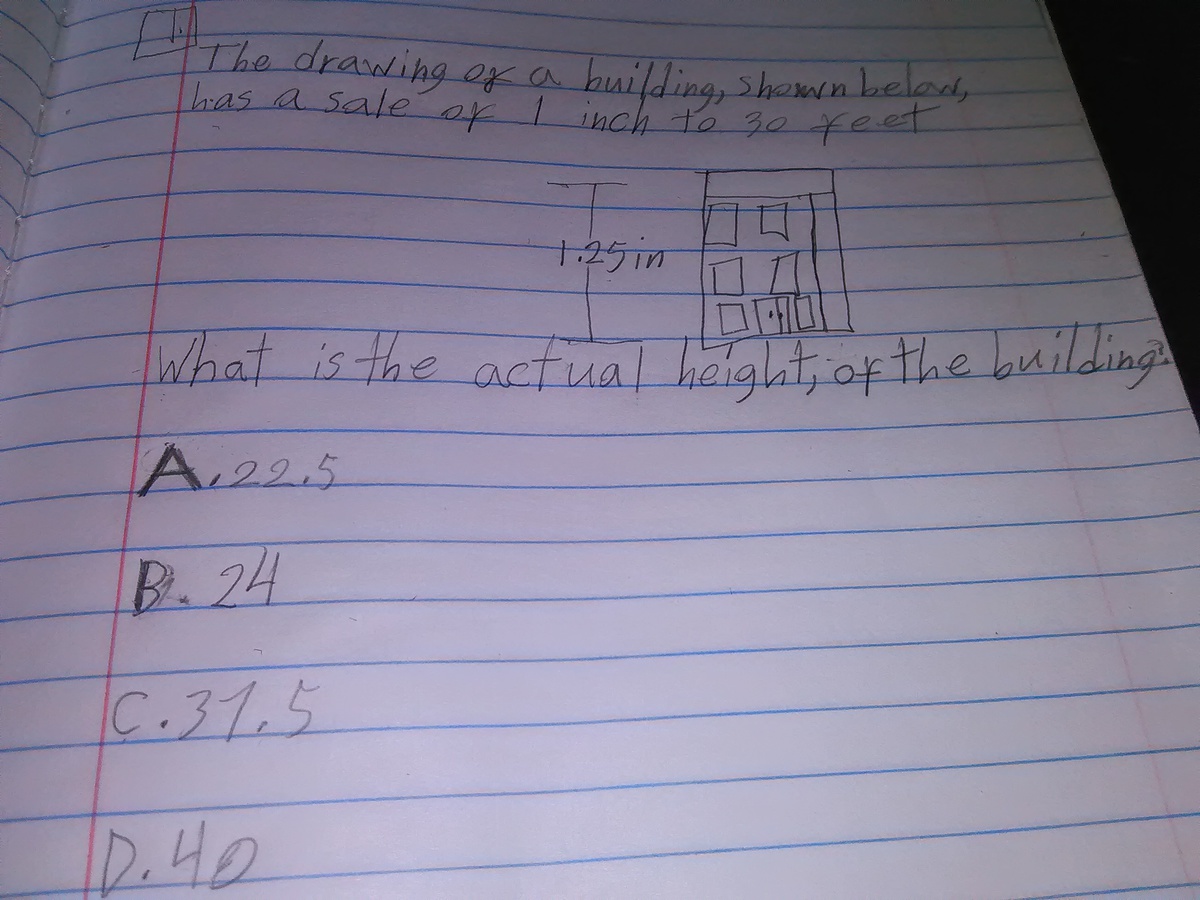 1.
The drawing of a building, shown below,
has a sale of 1 inch to 30 feet
1.25in
What is the actual height, of the building?
A. 22.5
B. 24
C. 37.5
D. 40